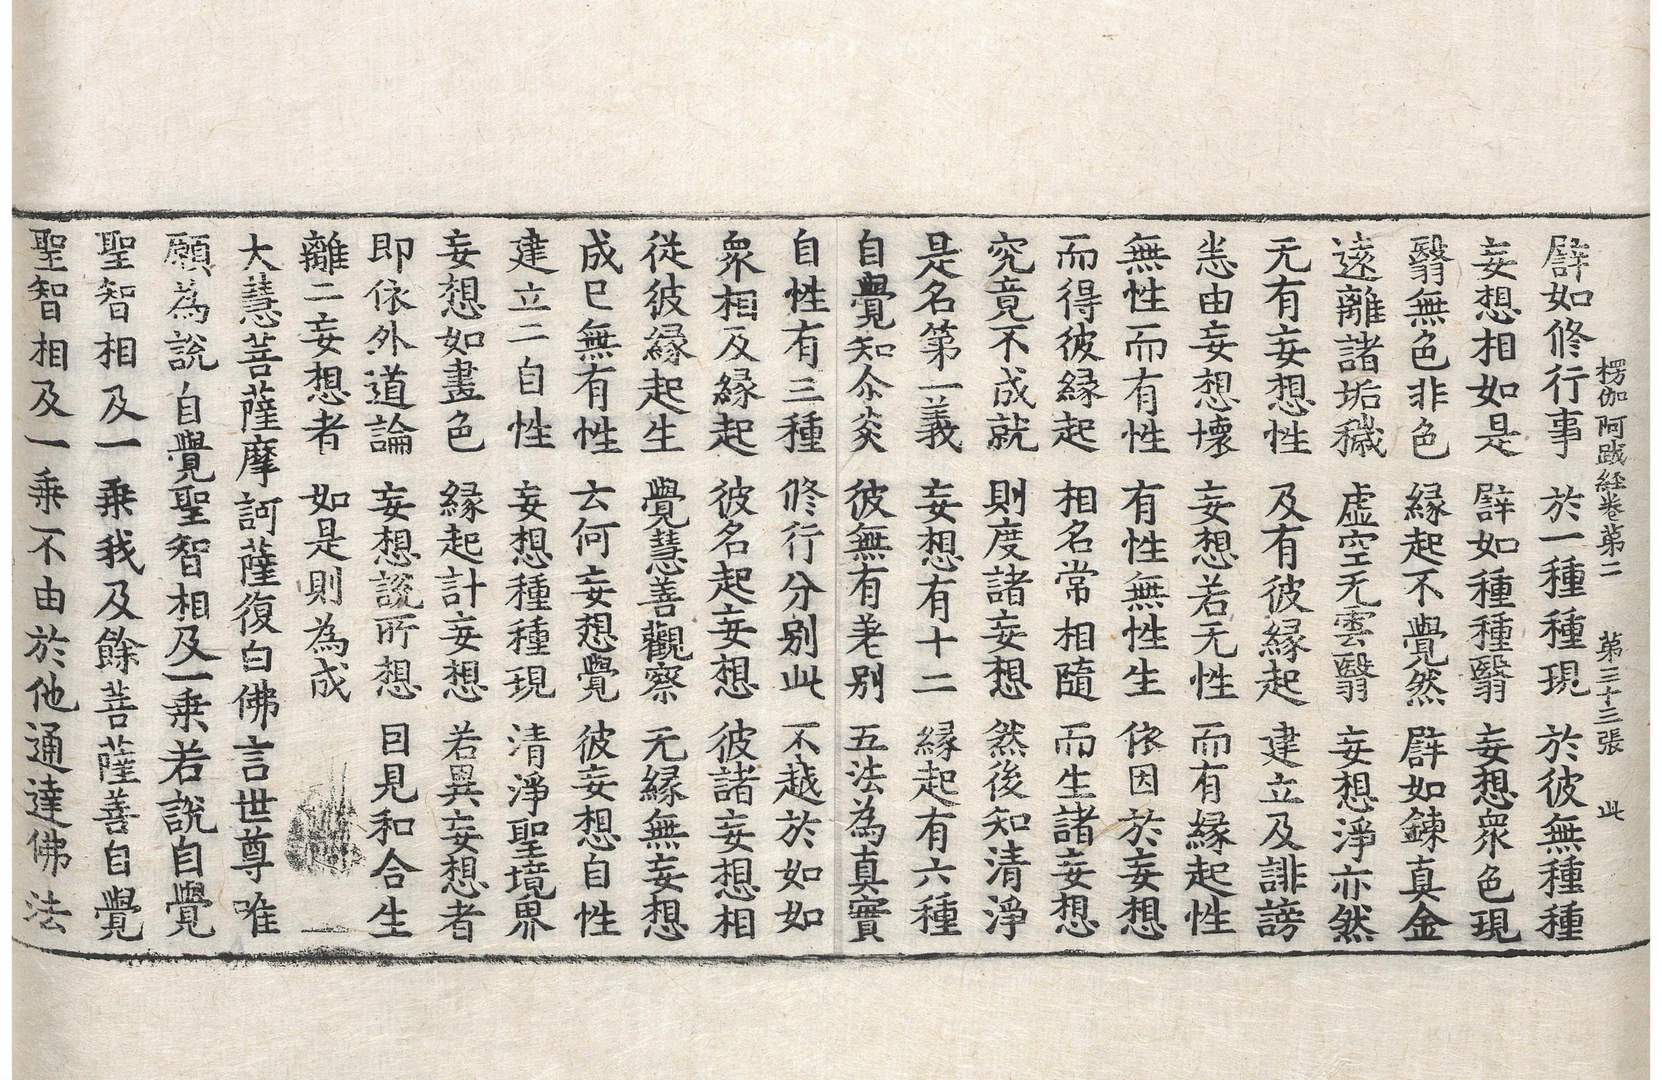 楞伽阿跋經卷第二 第三十三張 此
譬如修行事 於一種種現 於彼無種種
妄想相如是 譬如種種翳 妄想衆色現
翳無色非色 緣起不覺然 譬如鍊真金
遠離諸垢穢 虛空无雲翳 妄想淨亦然
无有妄想性 及有彼緣起 建立及誹謗
悉由妄想壞 妄想若无性 而有緣起性
無性而有性 有性無性生 依因於妄想
而得彼緣起 相名常相隨 而生諸妄想
究竟不成就 則度諸妄想 然後知清淨
是名第一義 妄想有十二 緣起有六種
自覺知尒炎 彼無有差別 五法為真實
自性有三種 修行分別此 不越於如如
衆相及緣起 彼名起妄想 彼諸妄想相
從彼緣起生 覺慧善觀察 无緣無妄想
成已無有性 云何妄想覺 彼妄想自性
建立二自性 妄想種種現 清淨聖境界
妄想如畫色 緣起計妄想 若異妄想者
即依外道論 妄想說所想 因見和合生
離二妄想者 如是則為成
大慧菩薩摩訶薩復白佛言世尊唯
願為說自覺聖智相及一乘若說自覺
聖智相及一乘我及餘菩薩善自覺
聖智相及一乘不由於他通達佛法